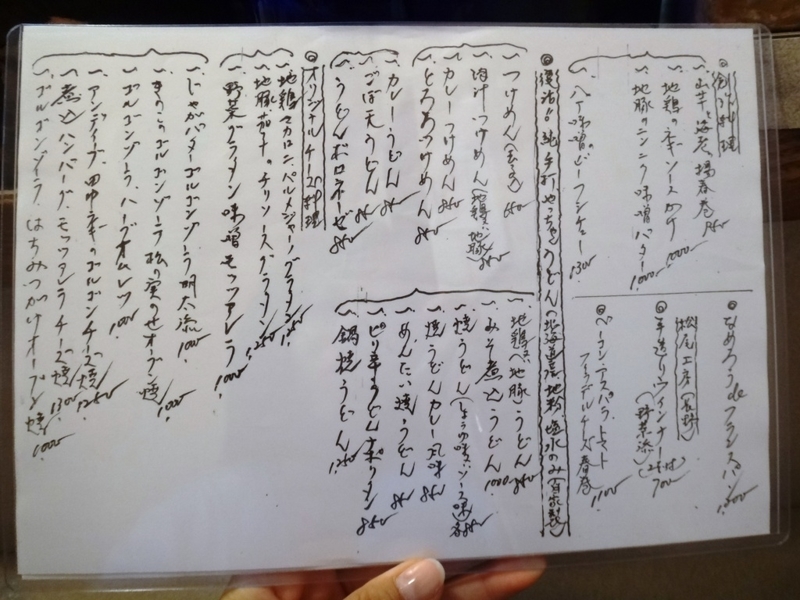 ◎創作料理
山芋と海老湯春巻 950
地鶏のネギソースかけ 1000
地豚のニンニク味噌バター 1000
八丁味噌のビーフシチュー 1300
◎なめろうdeフランスパン 1300
◎松尾工房(長野)
手造りウインナー(2本付) 700
(野菜添)
◎ベーコン・アスパラ・トマト
フィラデルチーズ春巻 1100
つけめん
肉汁つけめん(地鶏又は地豚) 850
カレーつけめん 850
とろろつけめん 850
カレーうどん 850
ごぼ天うどん 850
うどんボロネーゼ 850
(地鶏又は地豚)うどん 850
みそ煮込うどん 1000
焼うどん(しょうゆ味又はソース味) 各850
焼うどんカレー風味 850
めんたい焼うどん 850
ピリ辛うどんナポリタン 850
鍋焼うどん 1250
◎オリジナルチーズ料理
地鶏マカロニ・パルメジャーノグラタン
地豚・茄子のチリソースグラタン 1250
野菜グラタン味噌モッツアレラ 1000
じゃがバターゴルゴンゾーラ明太添 1000
きのこのゴルゴンゾーラ松の実のせオーブン焼 1000
ゴルゴンゾーラ・ハーブオムレツ 1000
アンディーブ、田中ネギのゴルゴンチーズ焼 1250
煮込ハンバーグ、モッツァレラチーズ焼 1300
ゴルゴンゾーラはちみつがけオーブン焼 1000